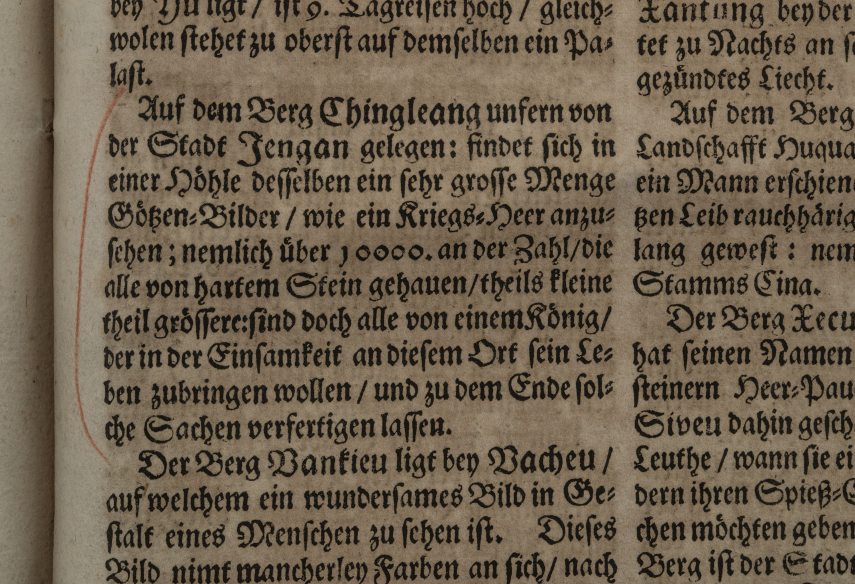 bey Yu ligt / ist 9. Tagreisen hoch / gleich⸗
wolen stehet zu oberst auf demselben ein Pa⸗
last.
Auf dem Berg Chingleang unfern von
der Stadt Jengan gelegen: findet sich in
einer Höhle desselben ein sehr grosse Menge
Götzen⸗Bilder / wie ein Kriegs⸗Heer anzu⸗
sehen; nemlich über 10000. an der Zahl/die
alle von hartem Stein gehauen/theils kleine
theil grössere:sind doch alle von einem König/
der in der Einsamkeit an diesem Ort sein Le⸗
ben zubringen wollen / und zu dem Ende sol⸗
che Sachen verfertigen lassen.
Der Berg Vankieu ligt bey Vacheu /
auf welchem ein wundersames Bild in Ge⸗
stalt eines Menschen zu sehen ist. Dieses
Bild nimt mancherley Farben an sich/ nach
Xantung bey der
tet zu Nachts an
gezündtes Liecht.
Auf dem Berg
Landschafft
ein Mann
tzen Leib
lang gewest : nem
Stamms Cina.
Der Berg
hat seinen Namen
steinern Heer⸗Pau
Siveu dahin
Leuthe / wann sie
dern ihren Spieß⸗
chen möchten geben
Berg ist der Stadt